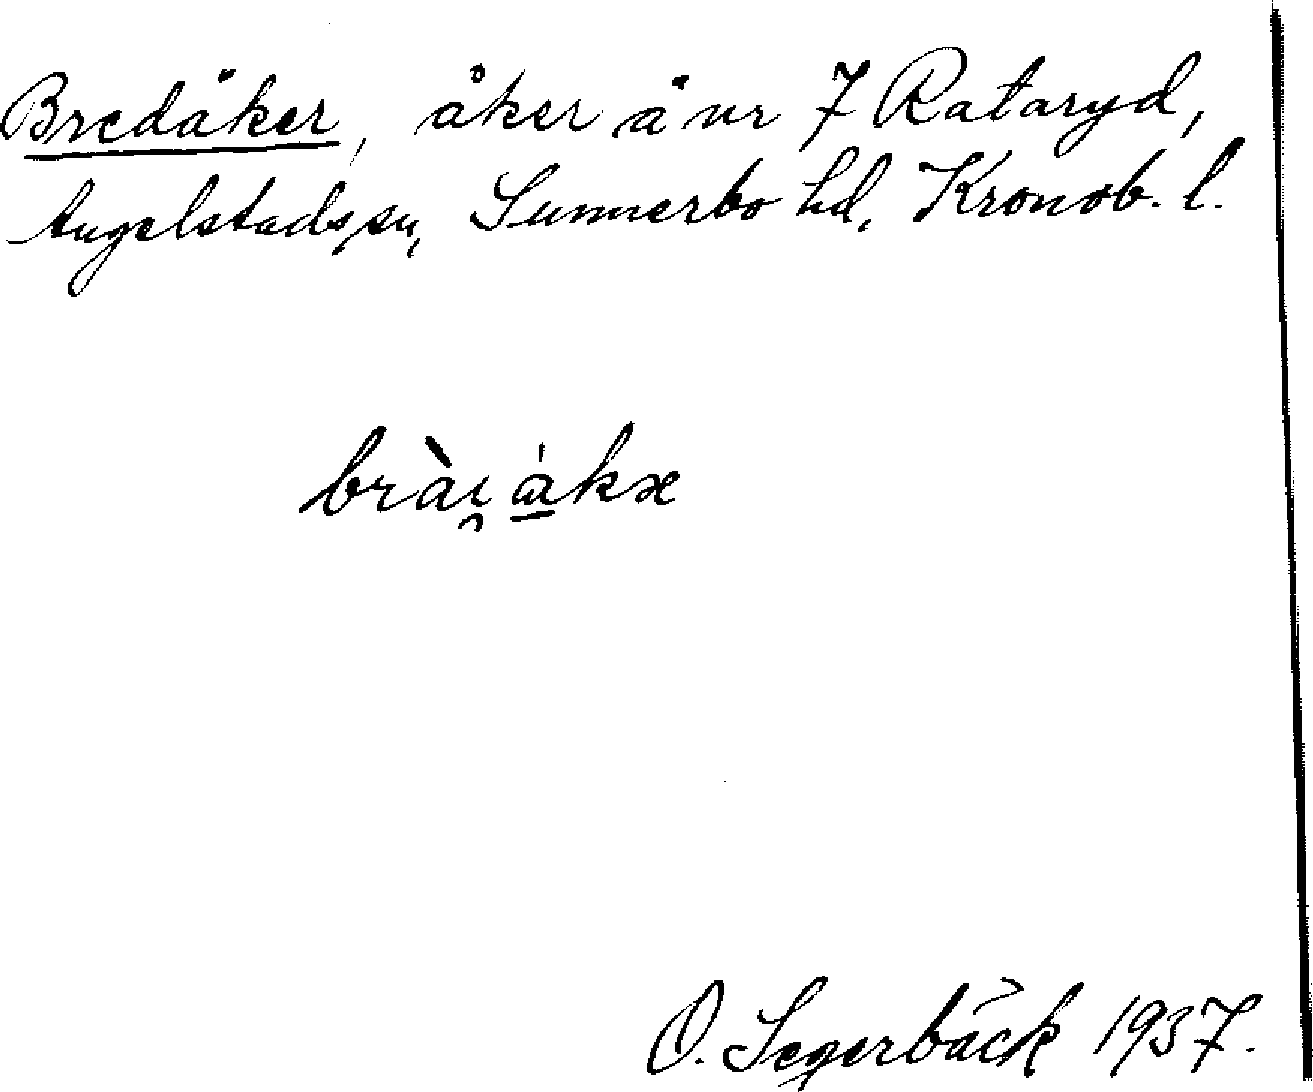 Bredåker, åker å nr 7 Rataryd,
Angelstads sn, Sunnerbo hd, Kronob. l.
O. Segerbäck 1937.